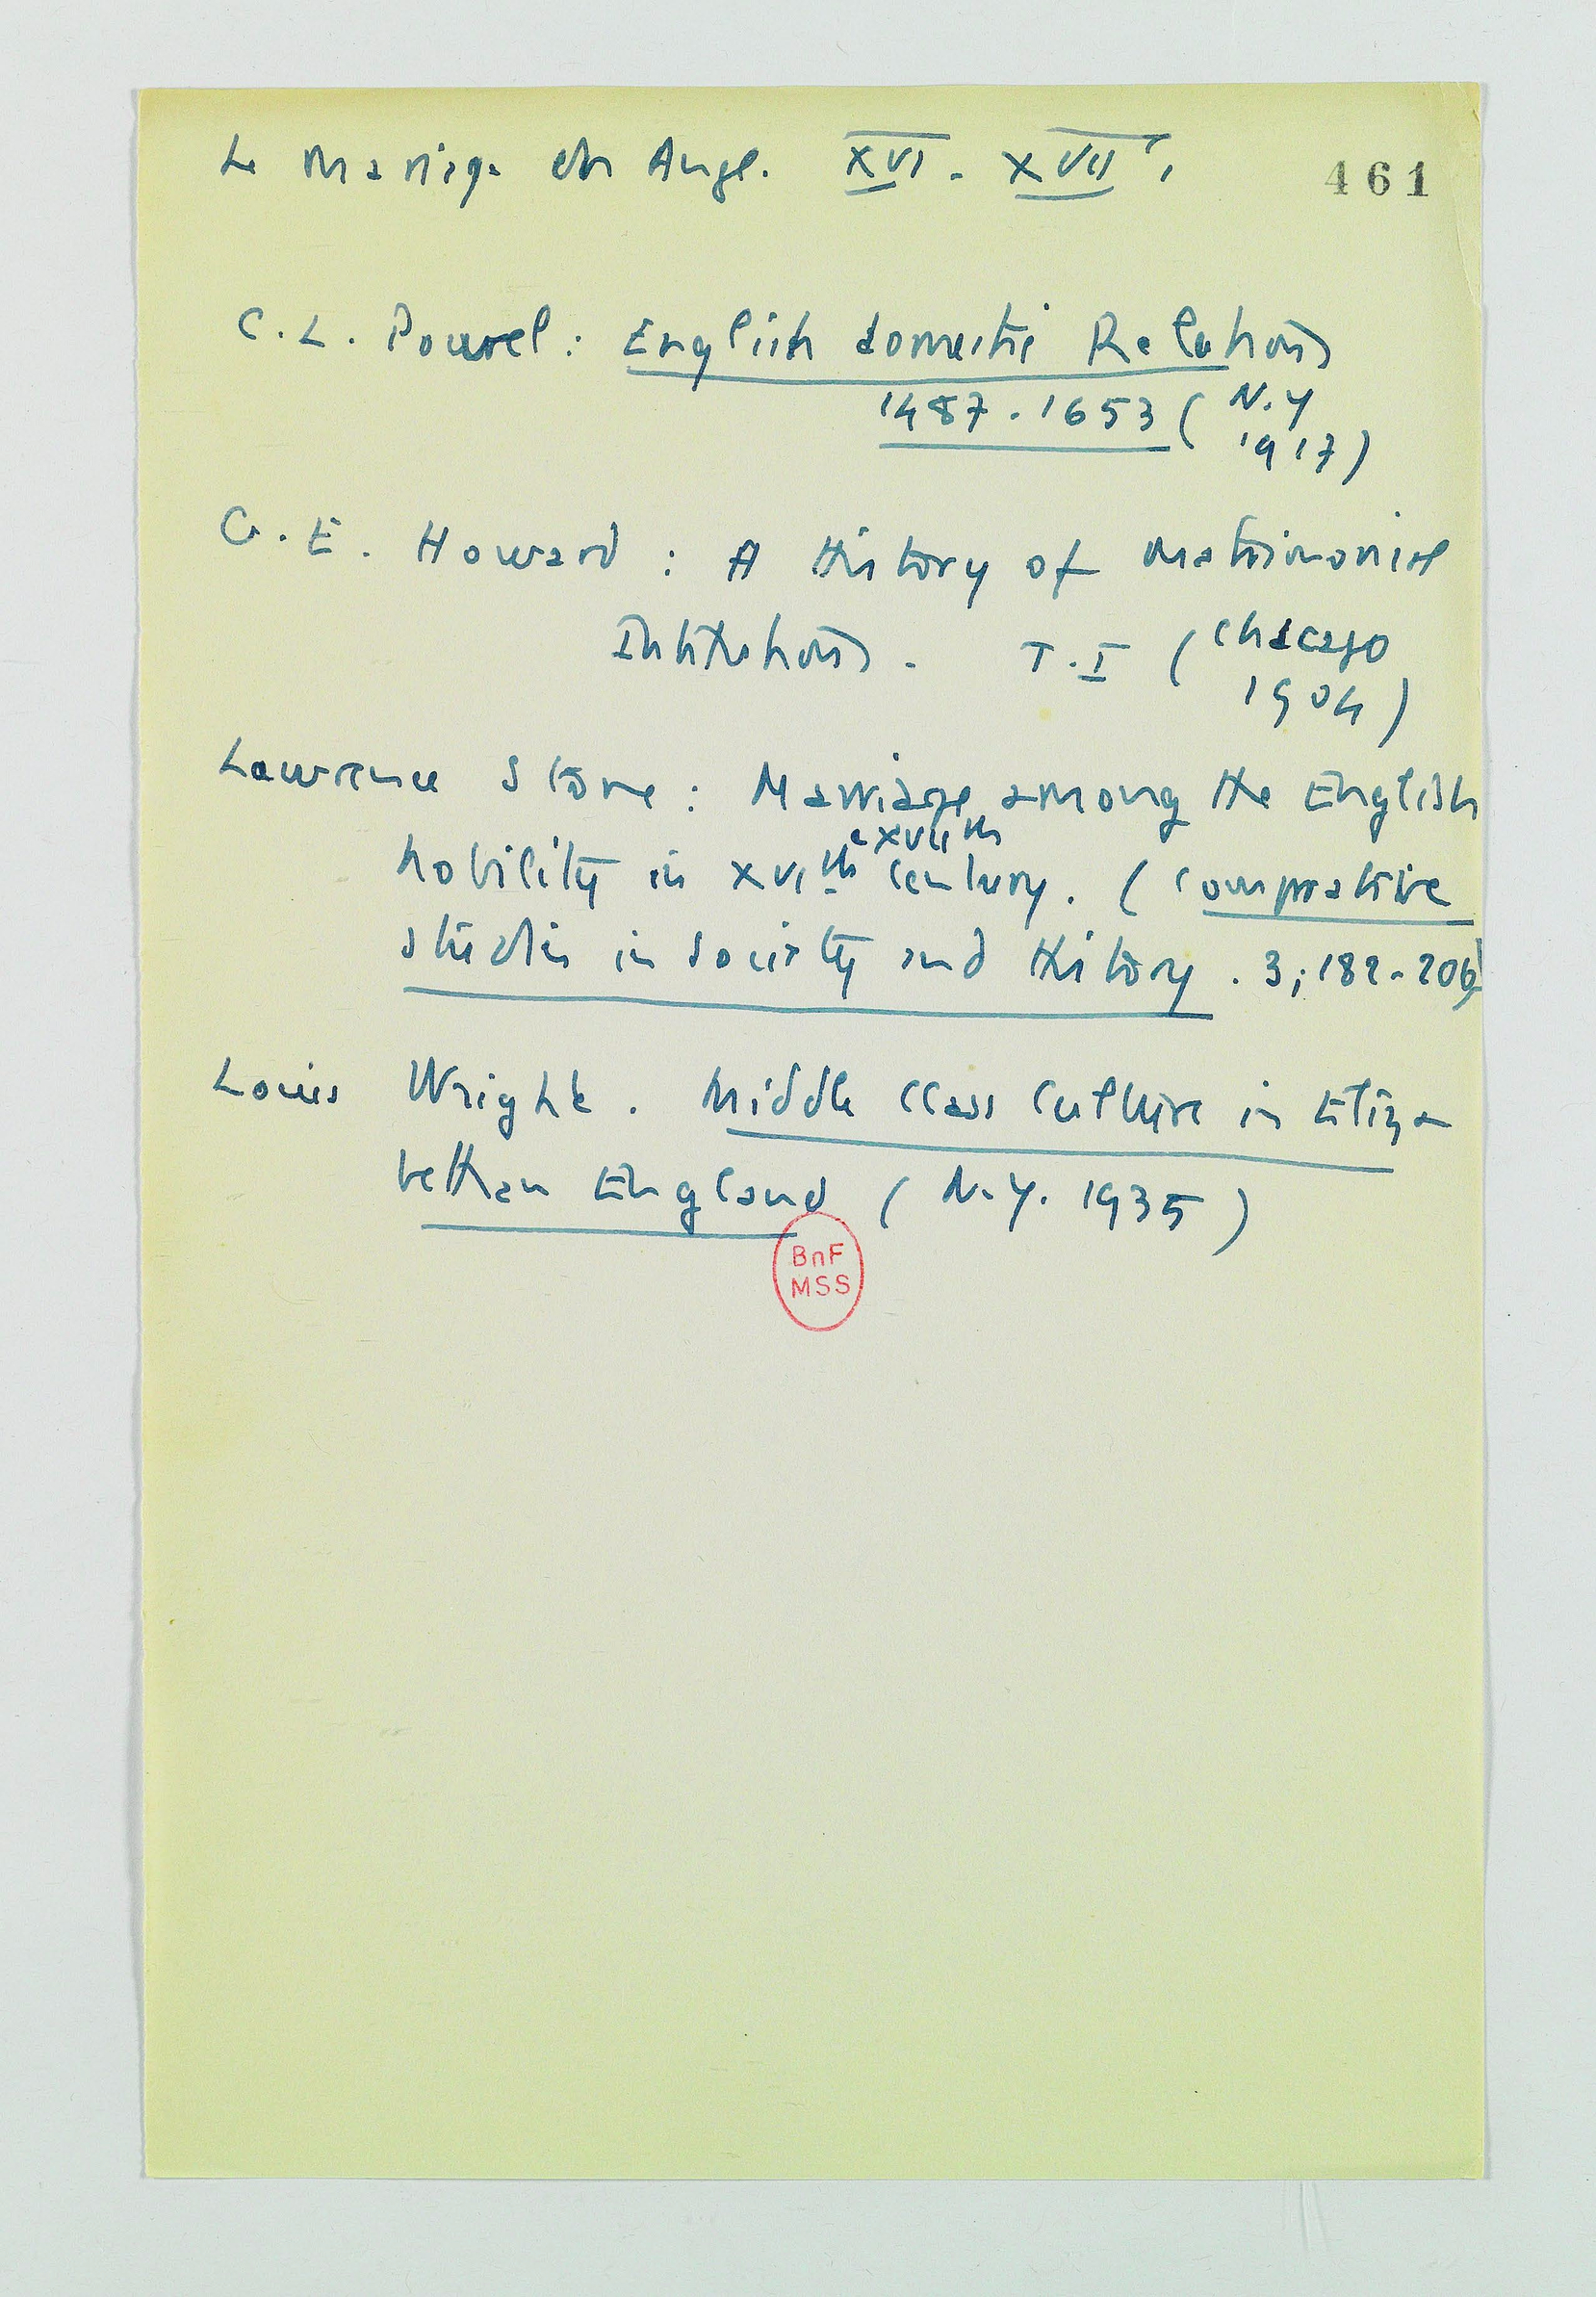 Le mariage en Angl. XVI - XVIIe.
461
C. L. Powel : English domestic Relations
1487 - 1653 ( N.Y
1917)
G. E. Howard : A History of matrimonial
Institutions. T. I ( Chicago
1904)
Lawrence Stone : Marriage among the English
e XVIIth
nobility in XVIth century. ( Comparative
studies in Society and History. 3; 182-206)
Louis Wright. Middle Class Culture in Eliza
bethan England ( N.Y. 1935 )
BnF
MSS